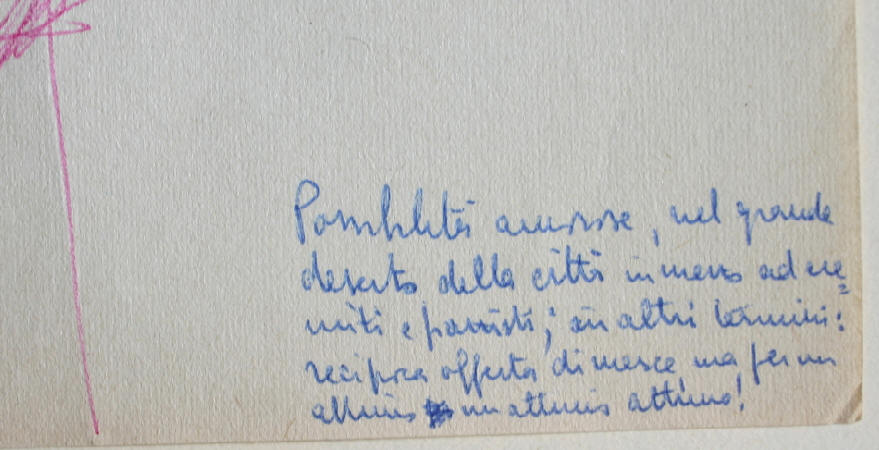 Possibilità amorose, nel grande
deserto della città in mezzo ad ere=
miti e passisti; in altri termini:
reciproca offerta di merce, ma per un
attimo un attimo attimo!